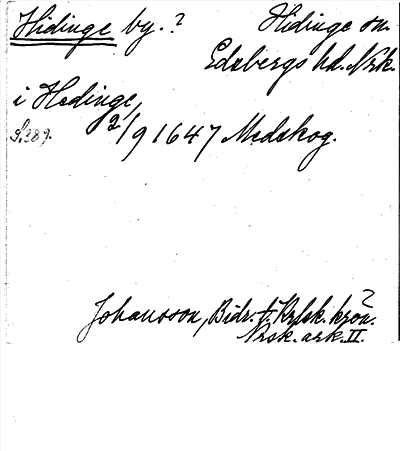 Hidinge by.?
Hidinge sn.
Edsbergs hd. Nrk.
i Hedinge,
S. 389.
2/9 1647 Medskog.
Johansson, Bidr. t. Krlsk. krön.?
Nrsk. ark. II.